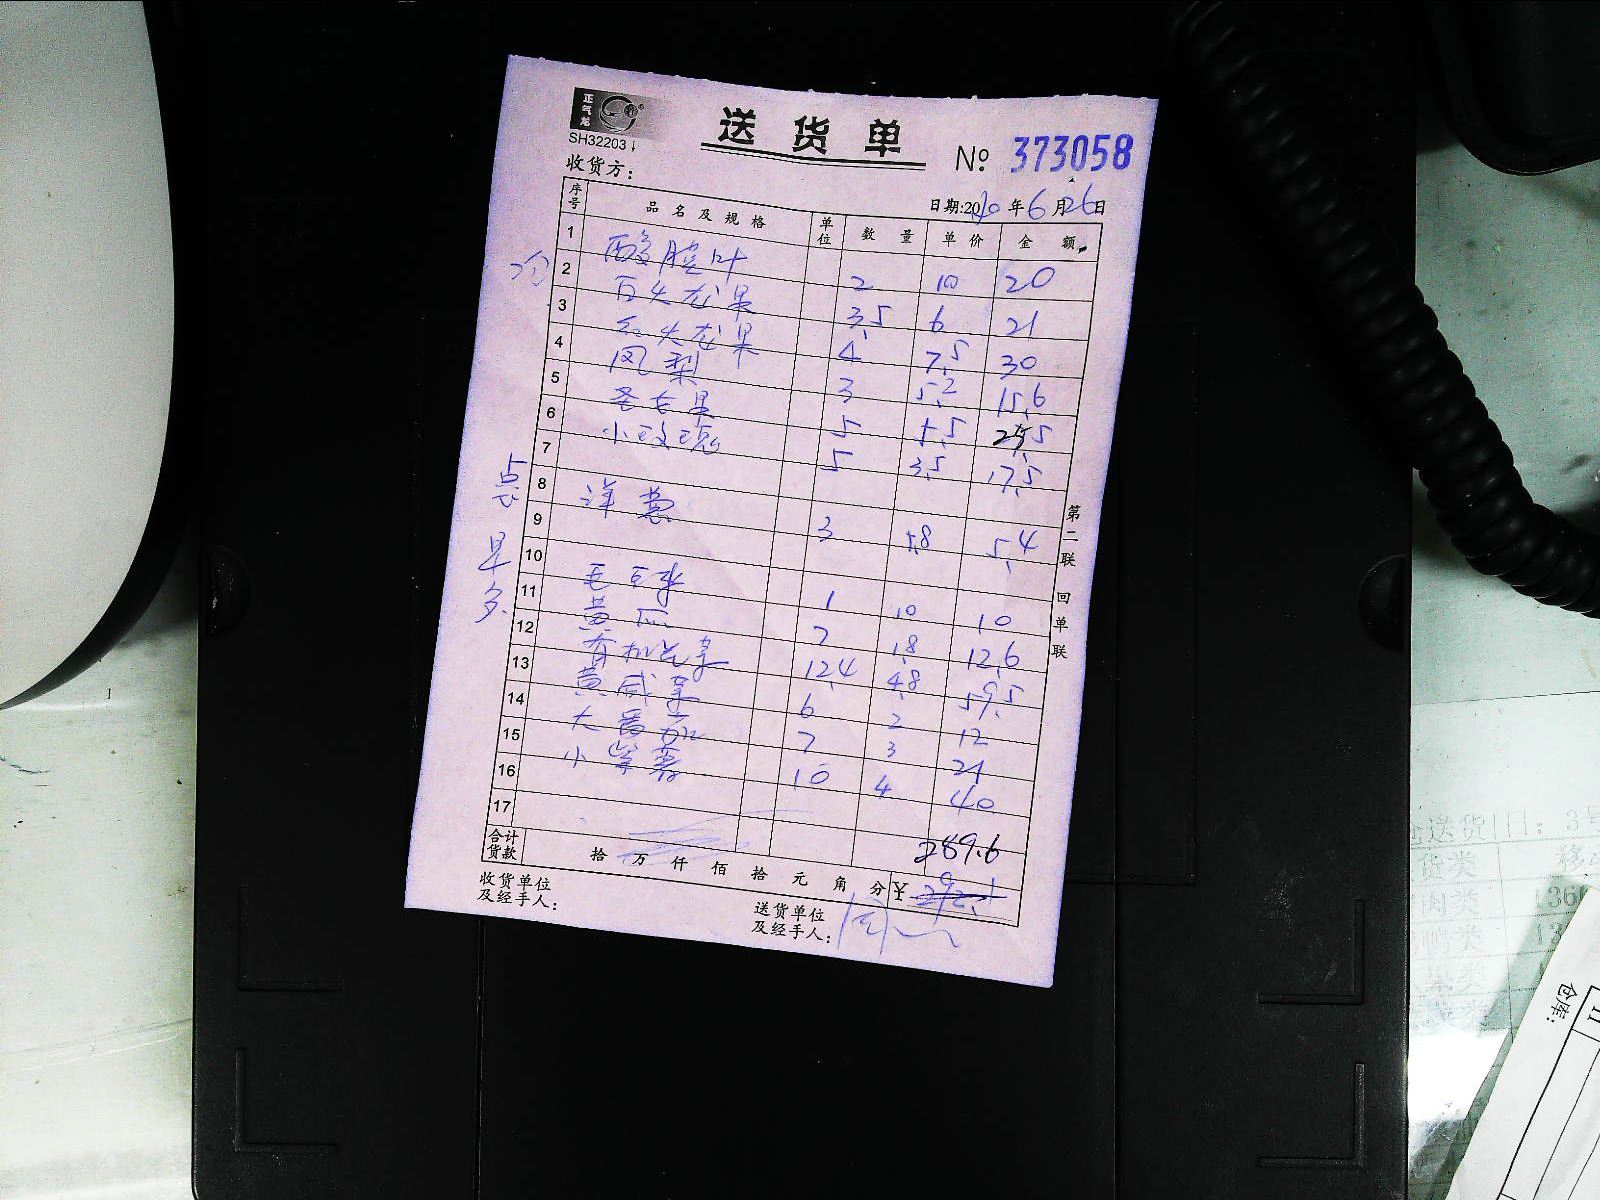 正气龙
SH32203
送货单
№ 373058
收货方:
日期:2020年6月26日
序号 品名及规格 单位 数量 单价 金额
1 酸膜叶 2 10 20
2 白火龙果 3.5 6 21
3 红火龙果 4 7.5 30
4 凤梨 3 5.2 15.6
5 圣女果 5 5.5
6 小玫瑰 5 3.5 17.5
7
8 洋葱 3 1.8 5.4
9
10 毛豆米 1 10 10
11 黄瓜 7 1.8 12.6
12 有机花菜 12.4 4.8 59.5
13 黄咸菜 6 2 12
14 大番茄 7 3 21
15 小紫薯 10 4 40
16
17
289.6
合计货款 拾万仟佰拾元角分 ¥
收货单位及经手人:
送货单位及经手人:
第二联 回单联
仓送货
日: 3号
货类
肉类
鸭类
仓库: